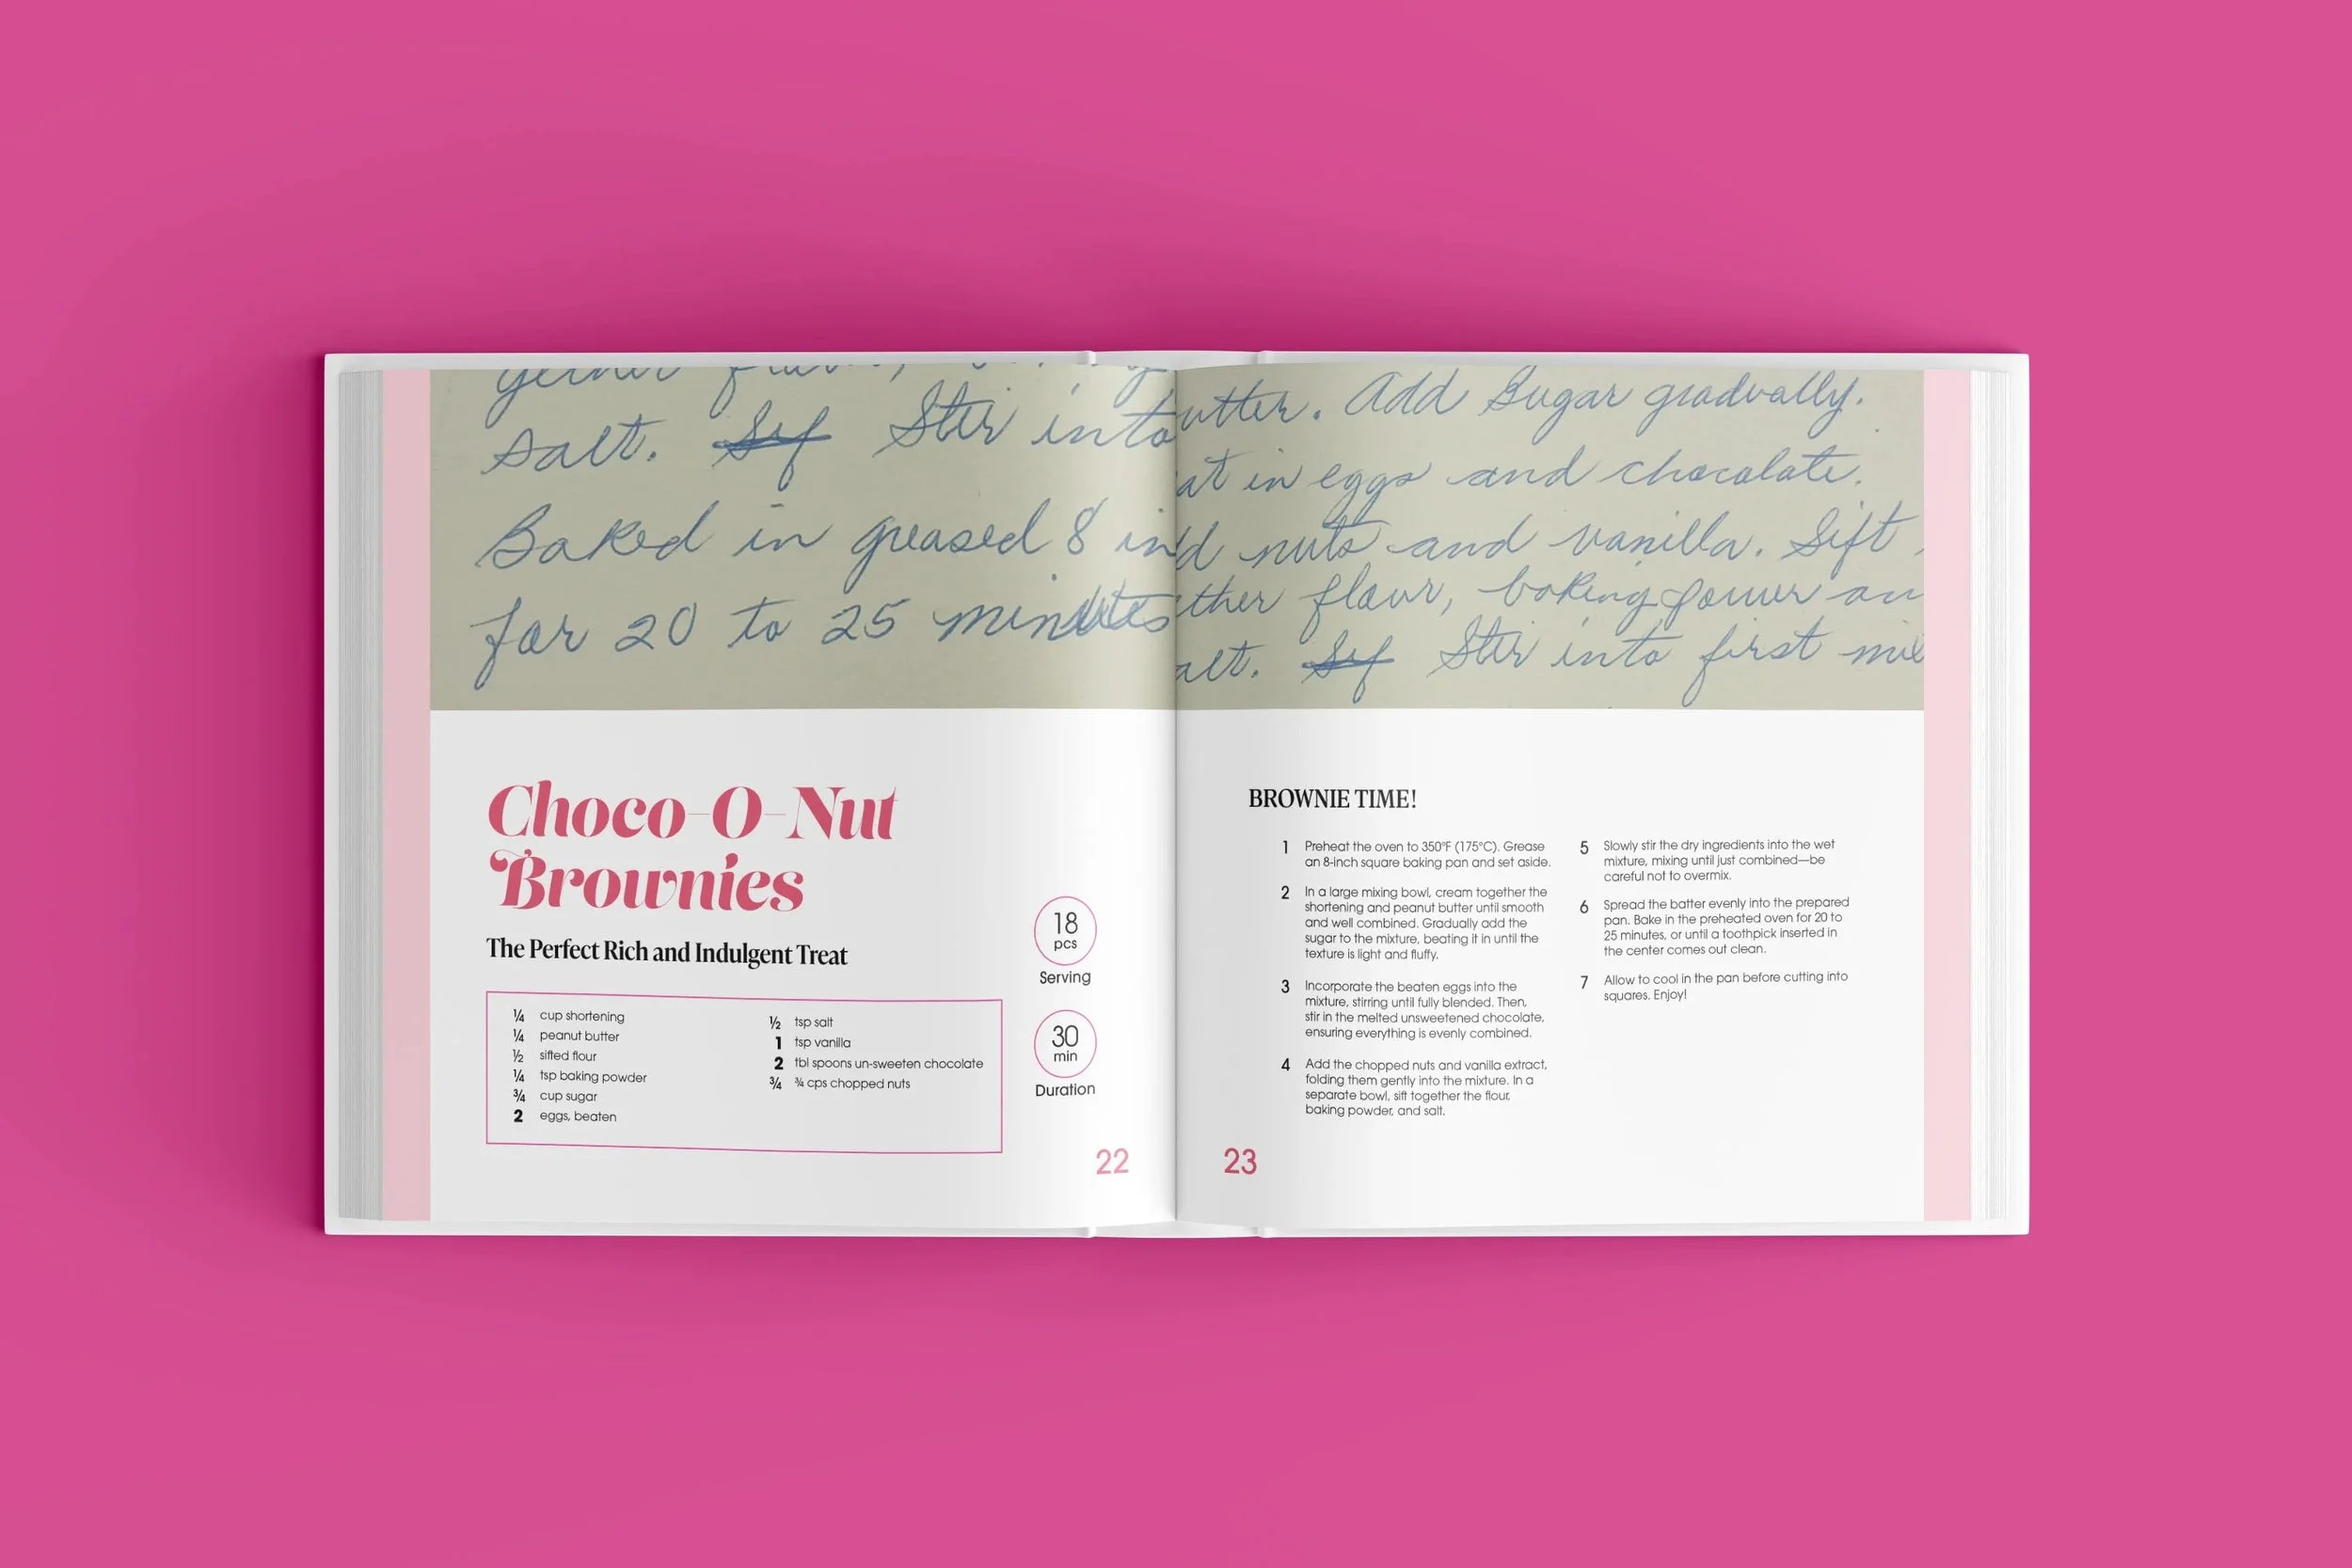 salt. Stir into
Baked in greased 8 in
for 20 to 25 minutes
Choco-O-Nut
Brownies
The Perfect Rich and Indulgent Treat
¼ cup shortening
¼ peanut butter
½ sifted flour
¼ tsp baking powder
¾ cup sugar
2 eggs, beaten
½ tsp salt
1 tsp vanilla
2 tbl spoons un-sweeten chocolate
¾ ¾ cps chopped nuts
18
pcs
Serving
30
min
Duration
22
utter. Add Sugar gradually.
at in eggs and chocolate.
d nuts and vanilla. Sift
ther flour, baking power an
alt. Stir into first mi
BROWNIE TIME!
1 Preheat the oven to 350°F (175°C). Grease
an 8-inch square baking pan and set aside.
2 In a large mixing bowl, cream together the
shortening and peanut butter until smooth
and well combined. Gradually add the
sugar to the mixture, beating it in until the
texture is light and fluffy.
3 Incorporate the beaten eggs into the
mixture, stirring until fully blended. Then,
stir in the melted unsweetened chocolate,
ensuring everything is evenly combined.
4 Add the chopped nuts and vanilla extract,
folding them gently into the mixture. In a
separate bowl, sift together the flour,
baking powder, and salt.
5 Slowly stir the dry ingredients into the wet
mixture, mixing until just combined—be
careful not to overmix.
6 Spread the batter evenly into the prepared
pan. Bake in the preheated oven for 20 to
25 minutes, or until a toothpick inserted in
the center comes out clean.
7 Allow to cool in the pan before cutting into
squares. Enjoy!
23